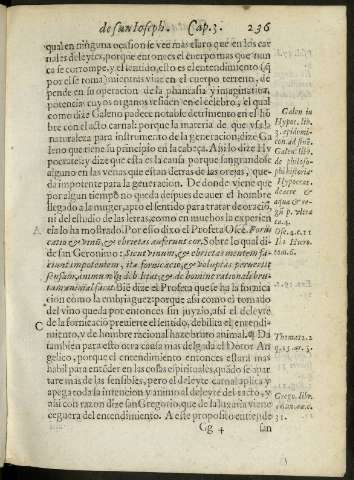 de san Ioseph. Cap. 3. 236
qual en ninguna ocasion se vee mas claro que en los car
nales deleytes, porque entonces el cuerpo mas que nun
ca se corrompe, y el sentido, esto es el entendimiento (q̃
por el se toma) mientras viue en el cuerpo terreno, de
pende en su operacion de la phantasia y imaginatiua,
potencias cuyos organos residen en el celebro, el qual
como dize Galeno padece notable detrimento en el hõ
bre con el acto carnal: porque la materia de que vsa la
naturaleza para instrumento de la generacion, dize Ga
leno que tiene su principio en la cabeça. Assi lo dize Hy
pocrates y dize que esta es la causa porque sangrandose
alguno en las venas que estan detras de las orejas, que-
da impotente para la generacion. De donde viene que
por algun tiempo no queda despues de auer el hombre
llegado a la muger, apto el sentido para tratar de oració,
ni del estudio de las letras, como en muchos la experien
cia lo ha mostrado. Por esso dixo el Profeta Osee. Forni
catio & vinũ, & ebrietas auferunt cor. Sobre lo qual di-
ze san Geronimo: Sicut vinum, & ebrietas mentem fa-
ciunt impotentem, ita fornicatio, & voluptas peruertit
sensum, animumq́; debilitat, & de homine rationale bru-
tum animal facit. Biẽ dize el Profeta que se ha la fornica
cion como la embriaguez: porque assi como el tomado
del vino queda por entonces sin juyzio, assi el deleyte
de la fornicacion peruierte el sentido, debilita el entendi-
miento, y de hombre racional haze bruto animal. ¶ Da
tambien para esto otra causa mas delgada el Dotor An
gelico, porque el entendimiento entonces estará mas
habil para entẽder en las cosas espirituales, quãdo se apar
tare mas de las sensibles, pero el deleyte carnal aplica y
apega toda la intencion y animo al deleyte del tacto, y
assi con razon dize san Gregorio, que de la luxuria viene
ceguera del entendimiento. A este proposito entiende
Gg 4 san
Galen in
Hyper. lib.
3. epidimi-
con. ad finẽ.
Galen. lib.
de philoso-
phi historia
Hypocrat.
de aere &
aqua & re-
gi[...] p. vltra
ca. 4.
Ose. 4. c. 11
Ibi Hiero.
tom. 6.
A
C
Thomas 2. 2
q. 15. ar. 3.
Grego. libr.
31.